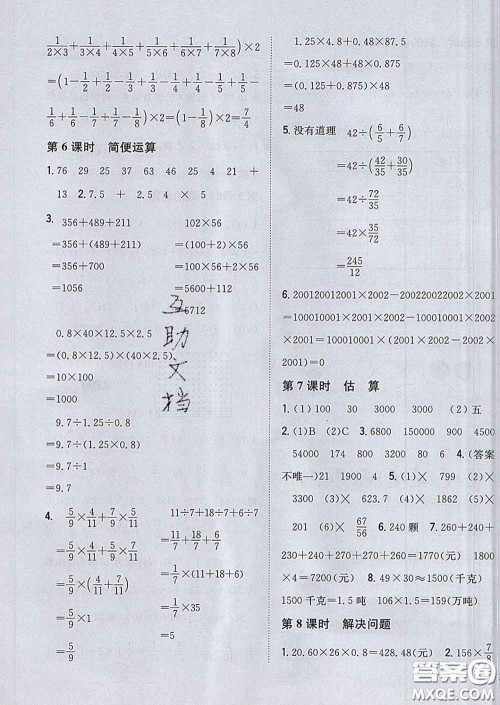 1/(2×3)+1/(3×4)+1/(4×5)+1/(5×6)+1/(6×7)+1/(7×8))×2
=(1-1/2+1/2-1/3+1/3-1/4+1/4-1/5+1/5-
1/6+1/6-1/7+1/7-1/8)×2=(1-1/8)×2=7/4
第6课时 简便运算
1.76 29 25 37 63 46 25 4 21 +
13 2.7.5 + 2.5 4 × 5
3.
356+489+211
=356+(489+211)
=356+700
=1056
102×56
=(100+2)×56
=100×56+2×56
=5600+112
=5712
0.8×40×12.5×2.5
=(0.8×12.5)×(40×2.5)
=10×100
=1000
9.7÷1.25÷0.8
=9.7÷(1.25×0.8)
=9.7÷1
=9.7
4. 5/9×4/11+7/11×5/9
=5/9×4/11+5/9×7/11
=5/9×(4/11+7/11)
=5/9×1
=5/9
11÷7+18÷7+6÷7
=11/7+18/7+6/7
=1/7×(11+18+6)
=1/7×35
=5
互助文档
1.25×4.8+0.48×87.5
=0.125×48+48×0.875
=(0.125+0.875)×48
=1×48
=48
5.没有道理 42÷(6/5+6/7)
=42÷(42/35+30/35)
=42÷72/35
=42×35/72
=245/12
6.200120012001×2002-200220022002×
2001=100010001×2001×2002-100010001×2002
×2001=(100010001-100010001)×2002×
2001=0
第7课时 估 算
1.(1)100 30 3000 3000 (2)五
2.(1)B (2)C 3.6800 15000 480
54000 2700 4500 9000 4.(答案
不唯一)21 1900 4 5.(1)× 799 (2)×
3300 (3)× 1862 (4)× 935 (5)×
201 (6)× 67/56 6.240颗 7.260+240+
230+240+270+260+260=1760(元) 1800
×4=7200(元) 8.49×30≈1500(千克)
1500千克=1.5吨 106×1.5=159(万吨)
第8课时 解决问题
1.20.60×26×0.8=428.48(元) 2.156×7/8
答案圈
MXQE.COM